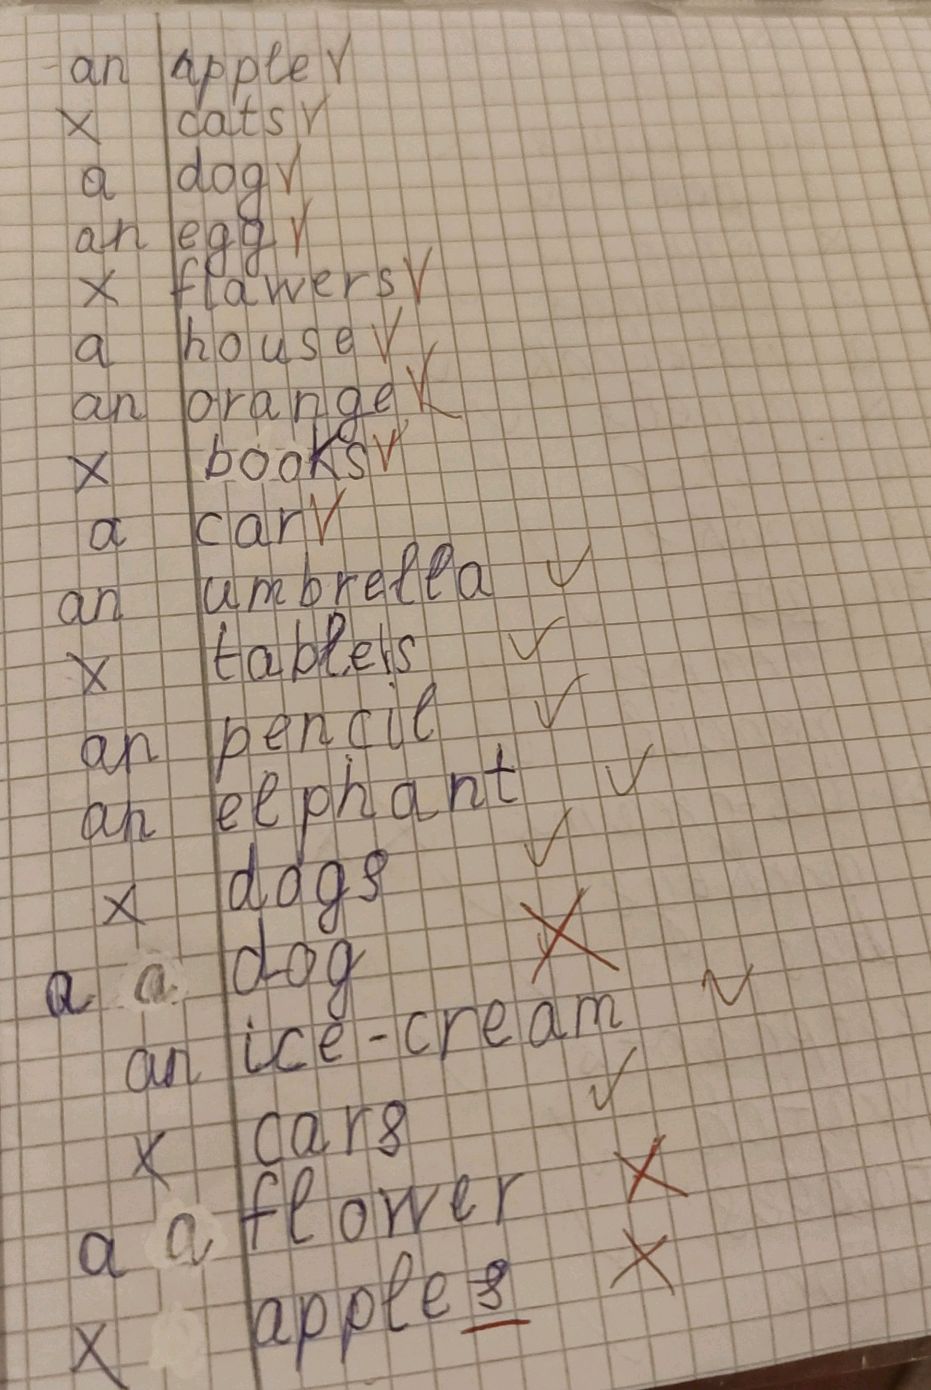 an apple ✓
x cats ✓
a dog ✓
an egg ✓
x flawers ✓
a house ✓
an orange ✓
x books ✓
a car ✓
an umbrella ✓
x tables ✓
an pencil ✓
an elphant ✓
x dogs ✓
a a dog X
an ice-cream ✓
x cars ✓
a a flower X
x apples X